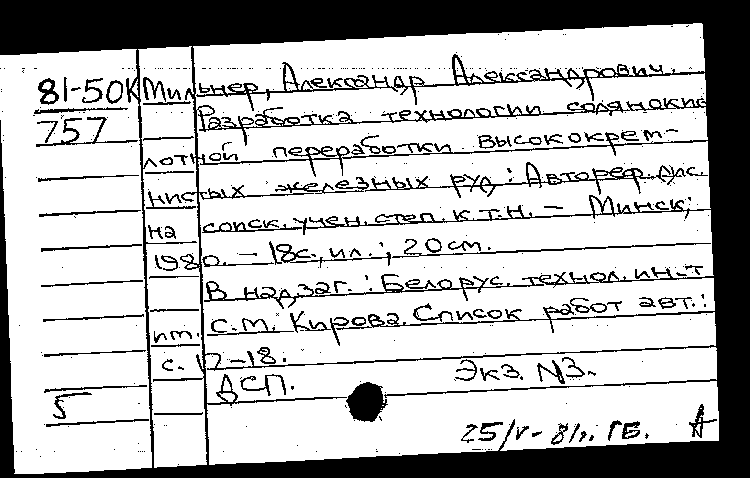 81-50К Мильнер, Александр Александрович.
757 Разработка технологии солянокис
лотной переработки высококрем-
нистых железных руд : Автореф. дис.
на соиск. учен. степ. к.т.н. – Минск,
1980. – 18с., ил. ; 20см.
В надзаг. : Белорус. технол. ин-т
им. С.М. Кирова. Список работ авт. :
с. 17-18.
ДСП. Экз. N3.
5
25/V-81г. ГБ. А